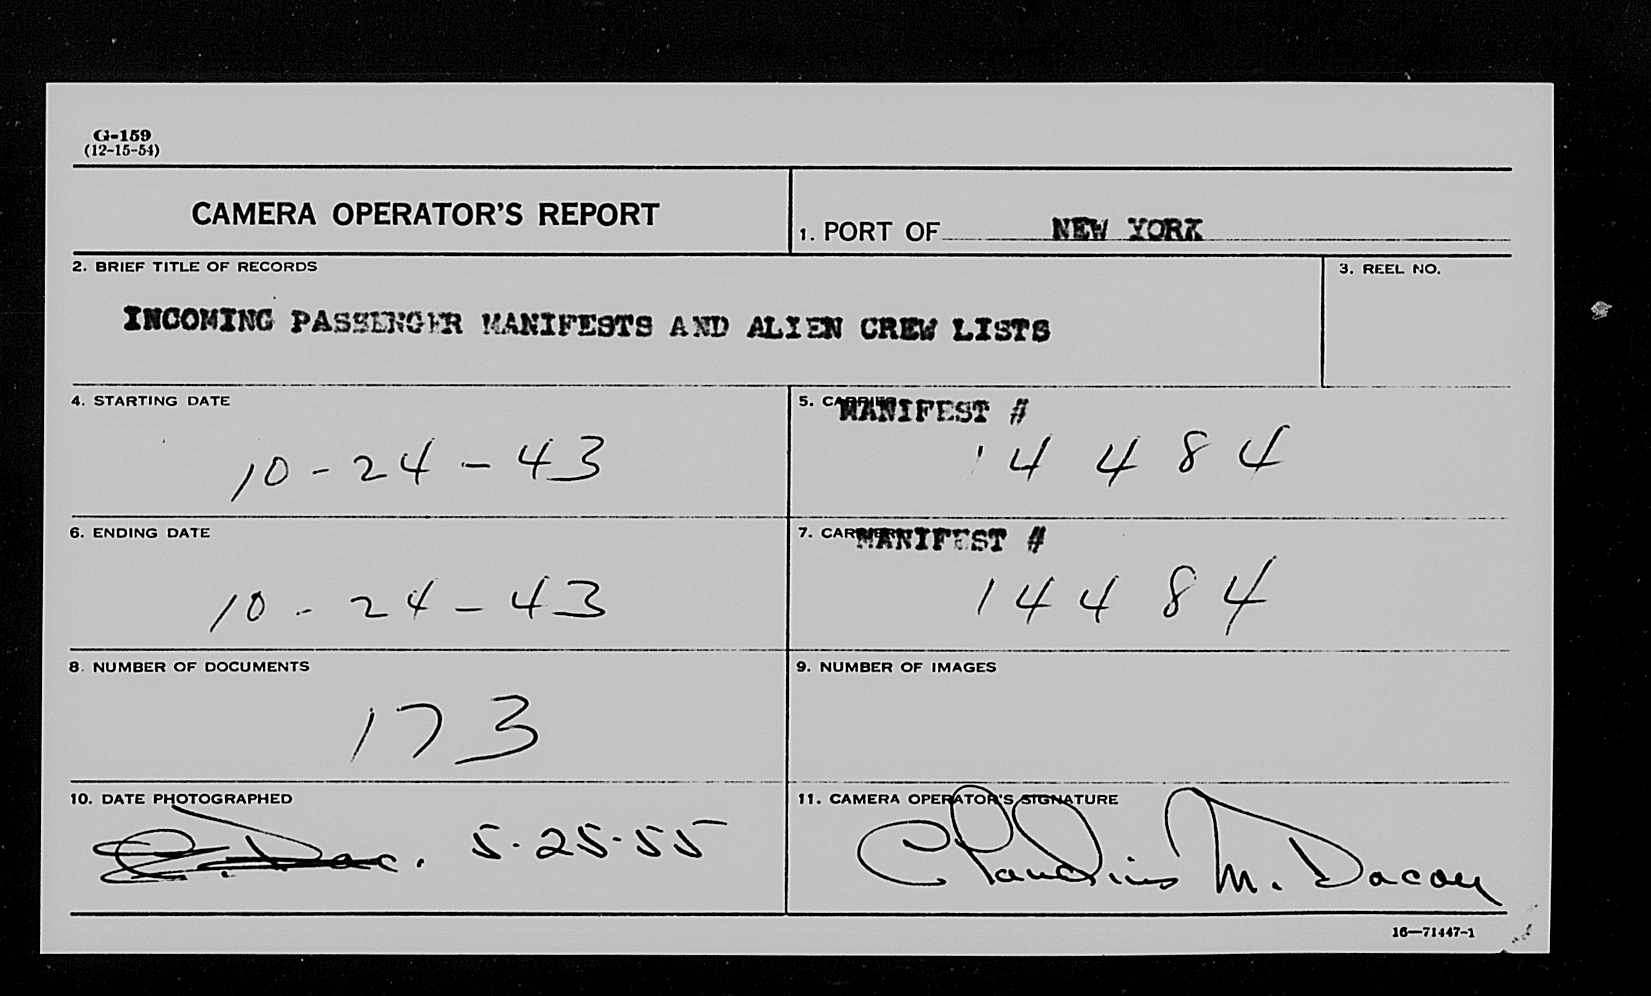 G-159
(12-15-54)
CAMERA OPERATOR'S REPORT
1. PORT OF NEW YORK
2. BRIEF TITLE OF RECORDS
3. REEL NO.
INCOMING PASSENGER MANIFESTS AND ALIEN CREW LISTS
4. STARTING DATE
5. CARRIER
MANIFEST #
10-24-43
14484
6. ENDING DATE
7. CARRIER
MANIFEST #
10-24-43
14484
8. NUMBER OF DOCUMENTS
9. NUMBER OF IMAGES
173
10. DATE PHOTOGRAPHED
11. CAMERA OPERATOR'S SIGNATURE
5-25-55
Claudius M. Dacon
16—71447-1